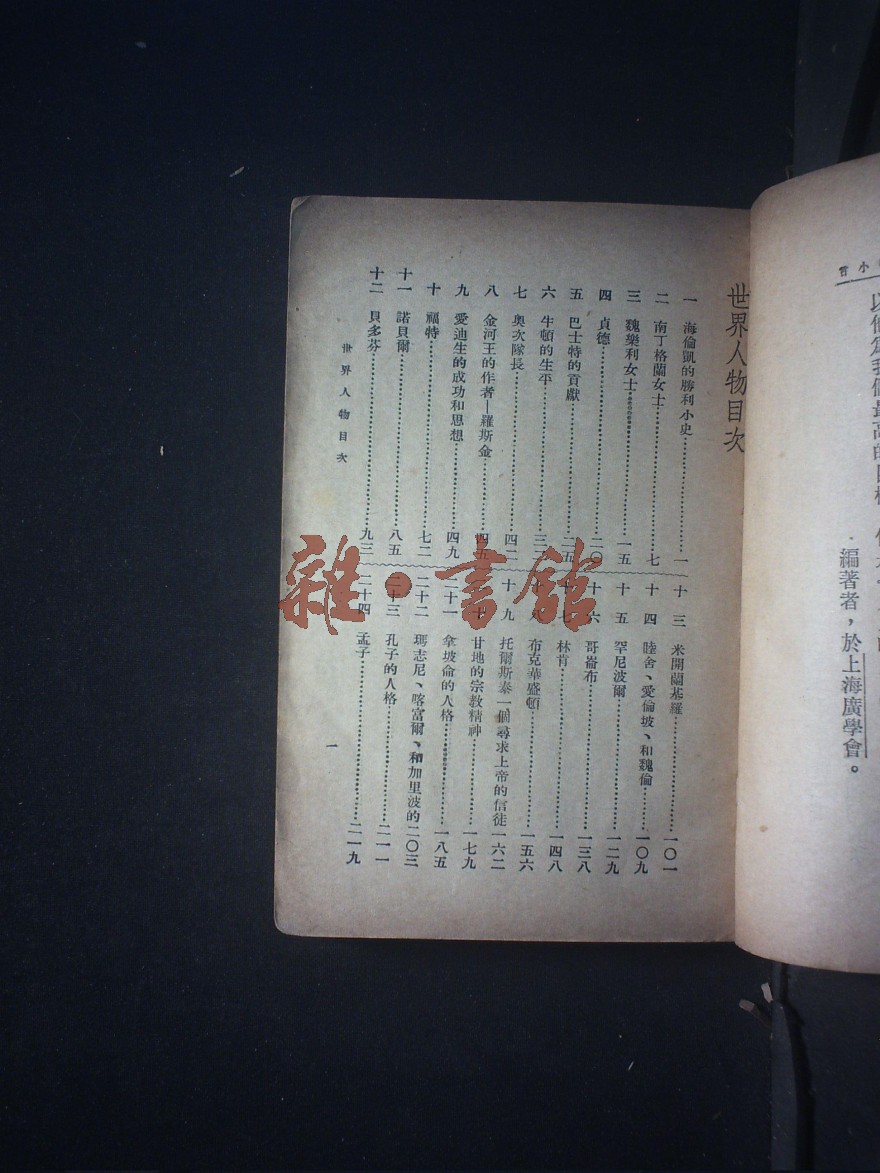 小言
編著者，於上海廣學會。
世界人物目次
一　海倫凱的勝利小史…………一
二　南丁格蘭女士…………七
三　魏樂利女士…………一五
四　貞德…………二〇
五　巴士特的貢獻…………二五
六　牛頓的生平…………三
七　奧次隊長…………四二
八　金河王的作者—羅斯金…………四五
九　愛迪生的成功和思想…………四九
十　福特…………七二
十一　諾貝爾…………八五
十二　貝多芬…………九三
十三　米開蘭基羅…………一〇一
十四　睦舍、愛倫坡、和魏倫…………一〇九
十五　罕尼波爾…………一二九
十六　哥崙布…………一三八
十七　林肯…………一四八
布克華盛頓…………一五六
十九　托爾斯泰一個尋求上帝的信徒一六二
甘地的宗教精神…………一七九
二十一　拿坡侖的人格…………一八五
二十二　瑪志尼、喀富爾、和加里波的二〇三
二十三　孔子的人格…………二一一
二十四　孟子…………二一九
世界人物目次
一
雜·書館